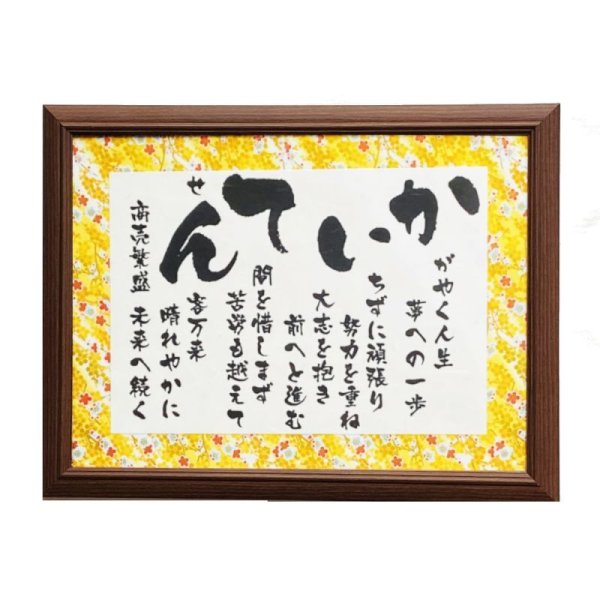 かいてん
せ
がやく人生
夢への一歩
ちずに頑張り
努力を重ね
大志を抱き
前へと進む
間を惜しまず
苦労も越えて
客万来
晴れやかに
商売繁盛 未来へ続く